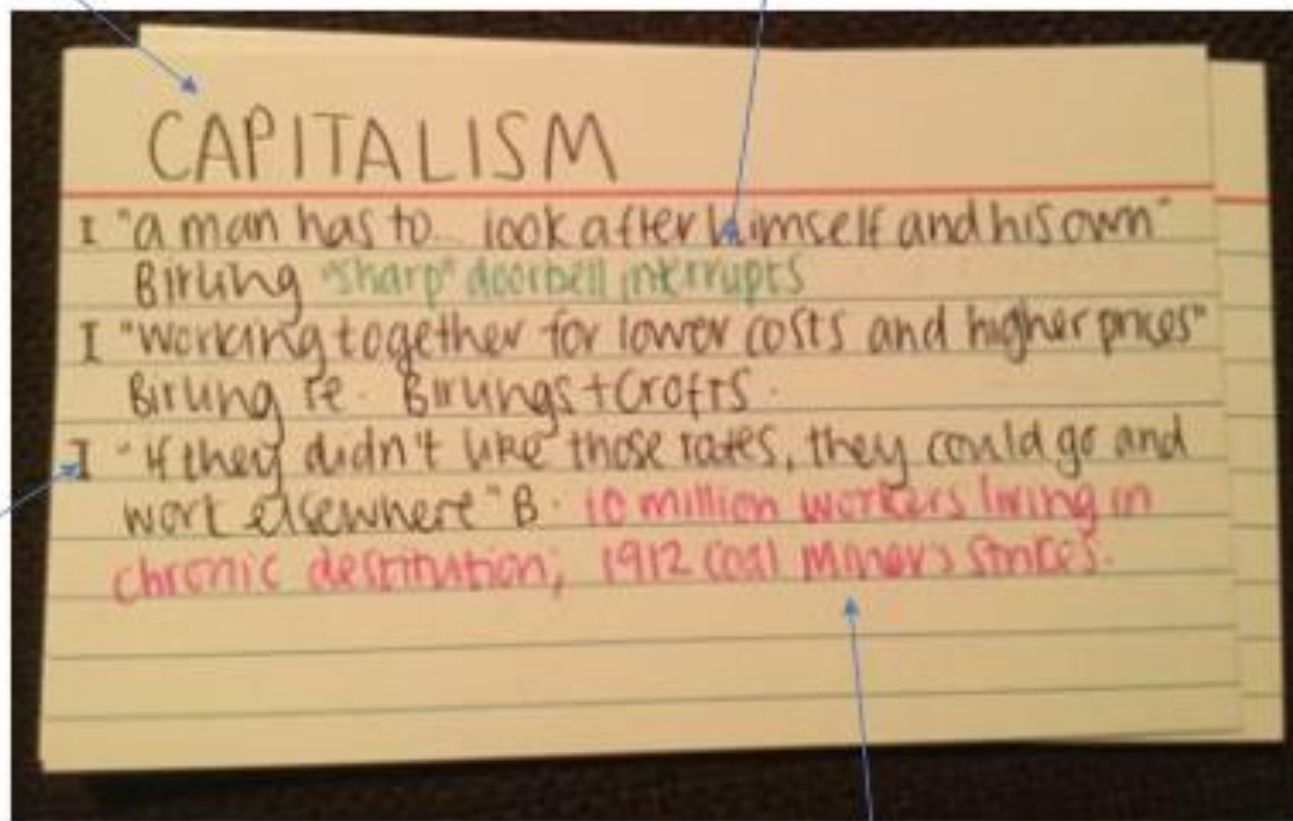 CAPITALISM
I "a man has to... look after himself and his own"
Birling "sharp" doorbell interrupts
I "working together for lower costs and higher prices"
Birling re. Birlings + Crofts.
I "If they didn't like those rates, they could go and
work elsewhere" B. 10 million workers living in
chronic destitution; 1912 coal Miner's strikes.